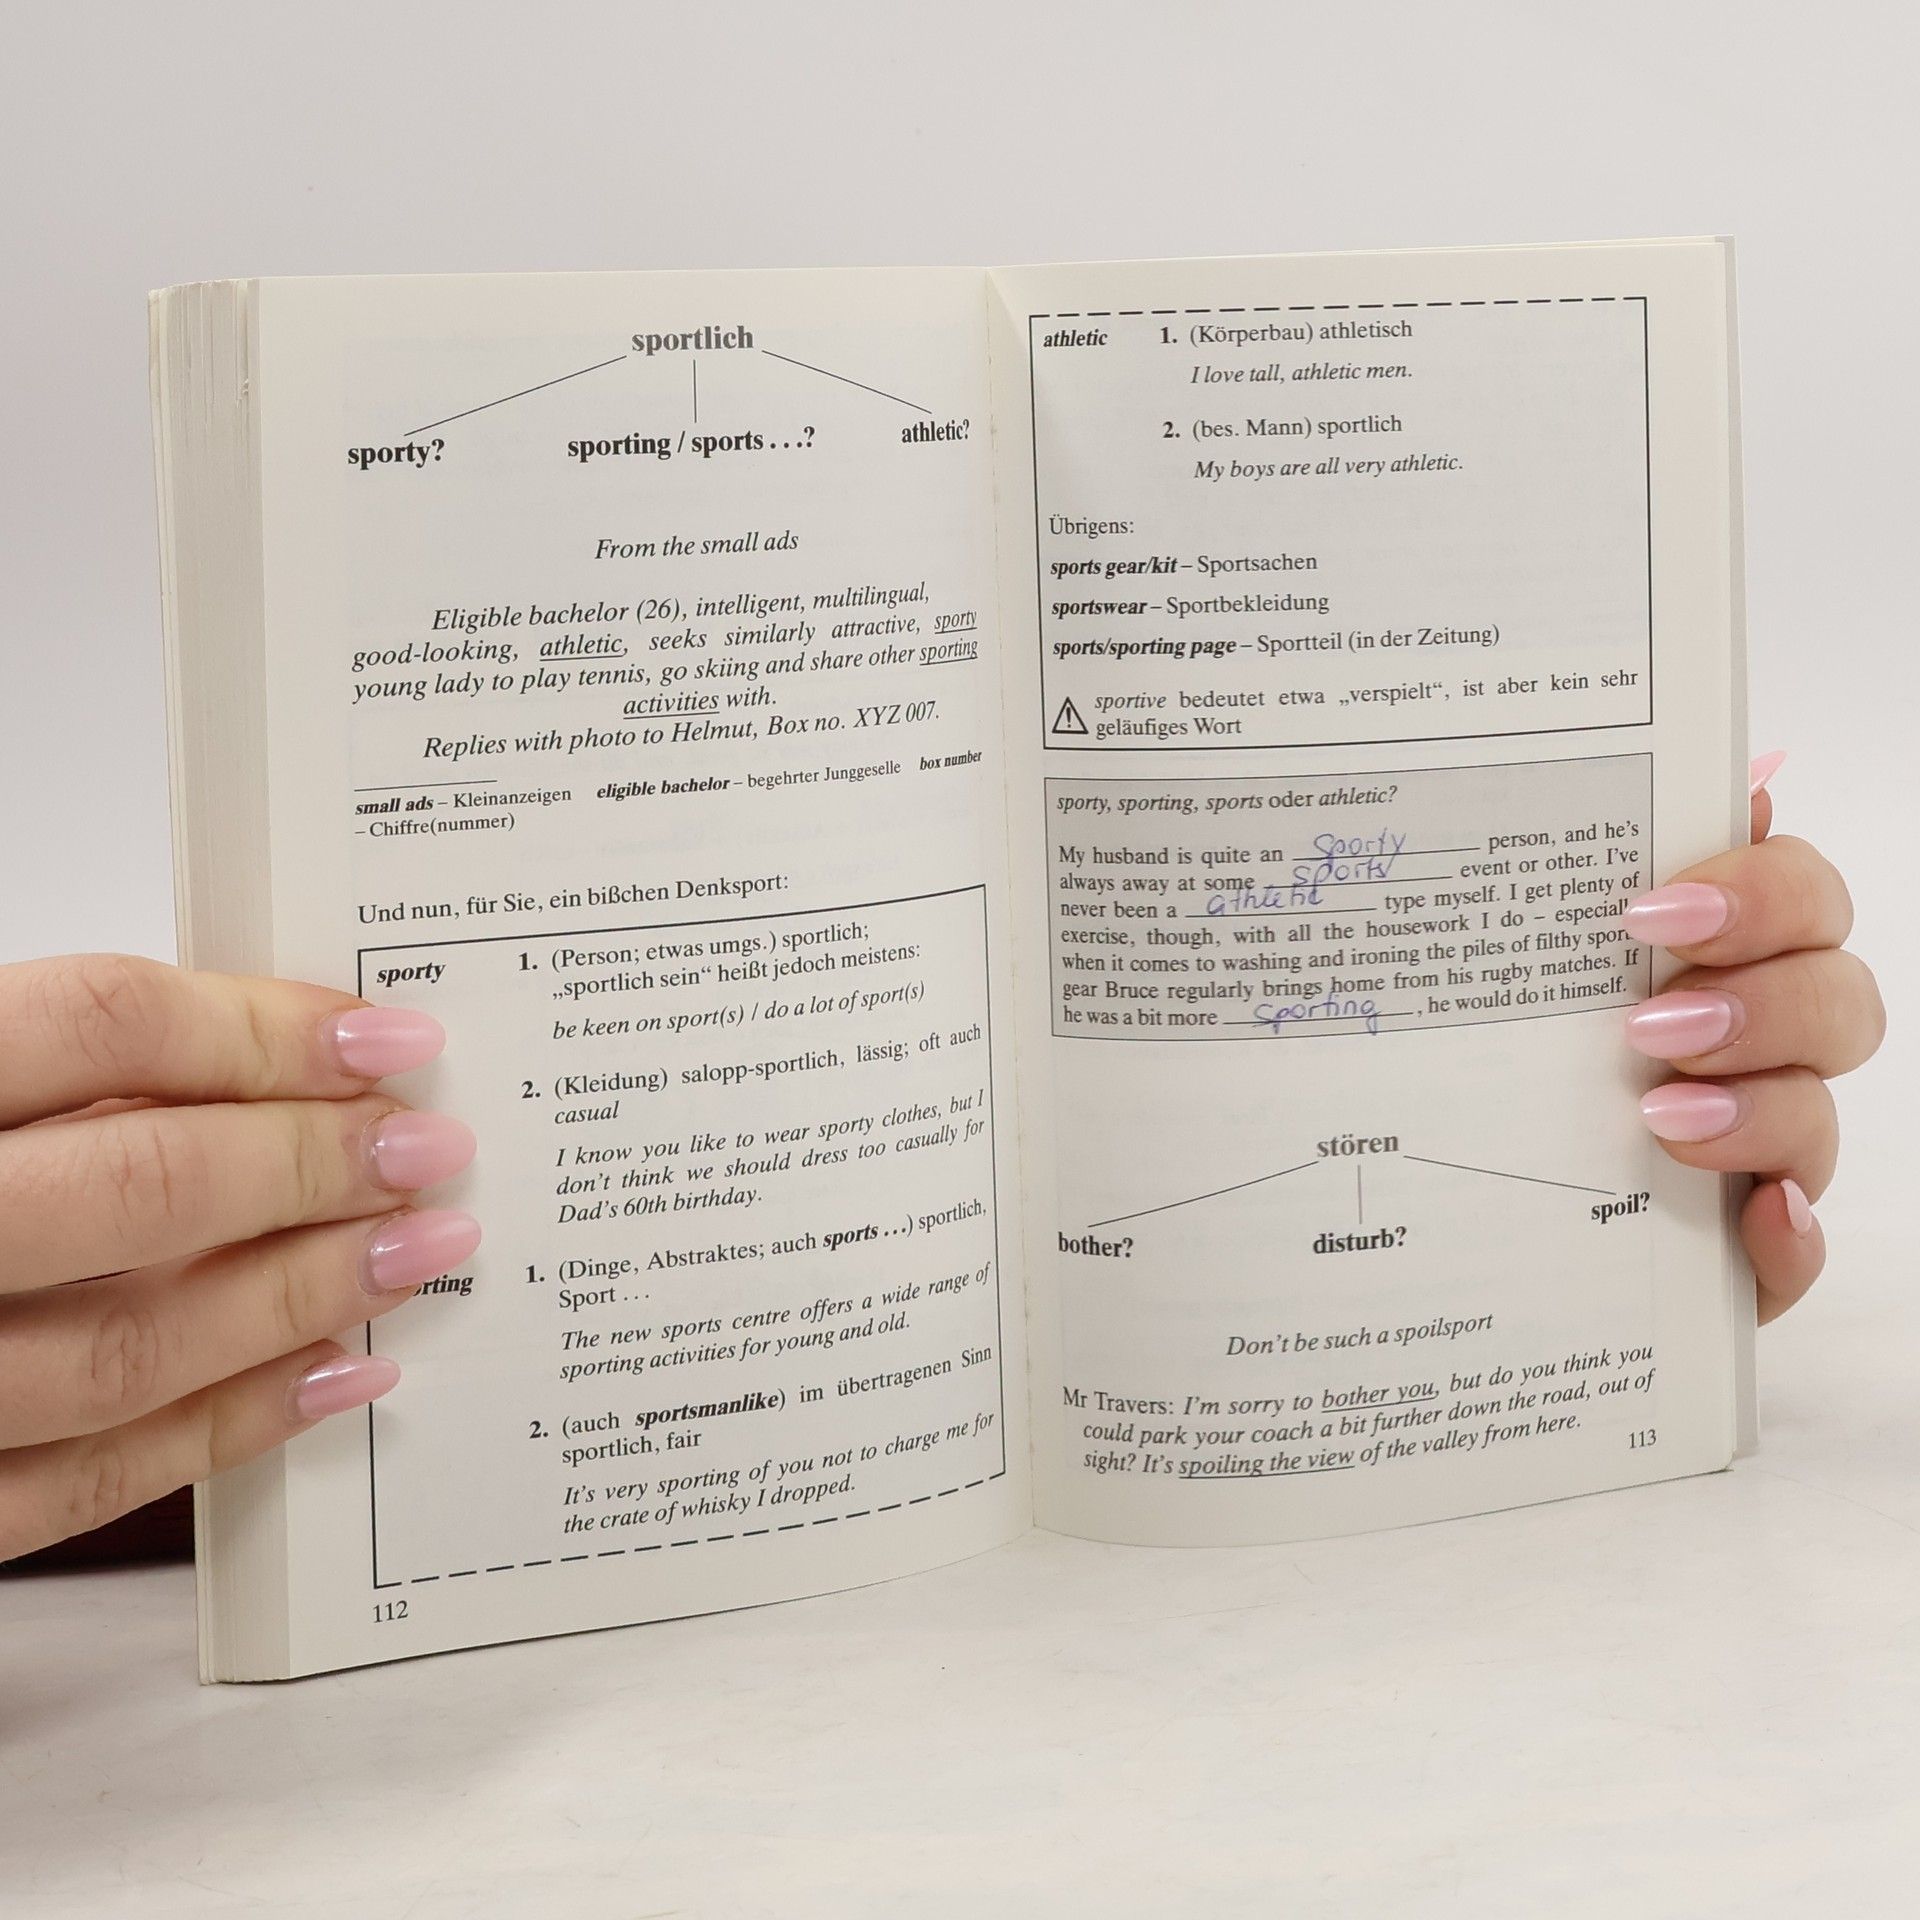 sportlich
sporty? sporting / sports . . .? athletic?
From the small ads
Eligible bachelor (26), intelligent, multilingual,
good-looking, athletic, seeks similarly attractive, sporty
young lady to play tennis, go skiing and share other sporting
activities with.
Replies with photo to Helmut, Box no. XYZ 007.
small ads – Kleinanzeigen eligible bachelor – begehrter Junggeselle box number
– Chiffre(nummer)
Und nun, für Sie, ein bißchen Denksport:
sporty 1. (Person; etwas umgs.) sportlich;
„sportlich sein“ heißt jedoch meistens:
be keen on sport(s) / do a lot of sport(s)
2. (Kleidung) salopp-sportlich, lässig; oft auch
casual
I know you like to wear sporty clothes, but I
don't think we should dress too casually for
Dad's 60th birthday.
rting 1. (Dinge, Abstraktes; auch sports . . .) sportlich,
Sport . . .
The new sports centre offers a wide range of
sporting activities for young and old.
2. (auch sportsmanlike) im übertragenen Sinn
sportlich, fair
It's very sporting of you not to charge me for
the crate of whisky I dropped.
112
athletic 1. (Körperbau) athletisch
I love tall, athletic men.
2. (bes. Mann) sportlich
My boys are all very athletic.
Übrigens:
sports gear/kit – Sportsachen
sportswear – Sportbekleidung
sports/sporting page – Sportteil (in der Zeitung)
sportive bedeutet etwa „verspielt“, ist aber kein sehr
geläufiges Wort
sporty, sporting, sports oder athletic?
My husband is quite an sporty person, and he's
always away at some sports event or other. I've
never been a athletic type myself. I get plenty of
exercise, though, with all the housework I do – especial
when it comes to washing and ironing the piles of filthy spor
gear Bruce regularly brings home from his rugby matches. If
he was a bit more sporting, he would do it himself.
stören
bother? disturb? spoil?
Don't be such a spoilsport
Mr Travers: I'm sorry to bother you, but do you think you
could park your coach a bit further down the road, out of
sight? It's spoiling the view of the valley from here.
113